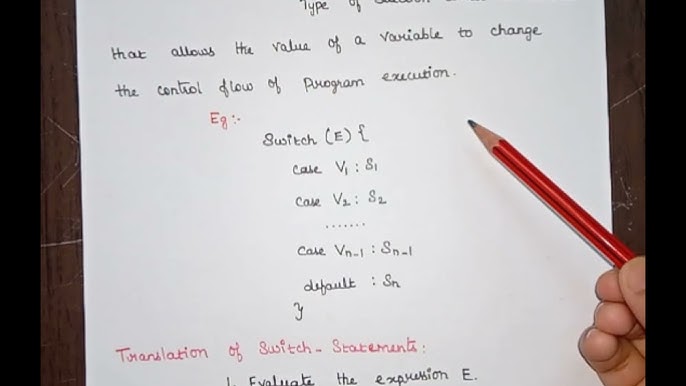 Type of
that allows the value of a variable to change
the control flow of Program execution.
Eg:-
Switch (E) {
case V₁ : S₁
case V₂ : S₂
.......
case Vn-1 : Sn-1
default : Sn
}
Translation of Switch-Statements:
1. Evaluate the expression E.